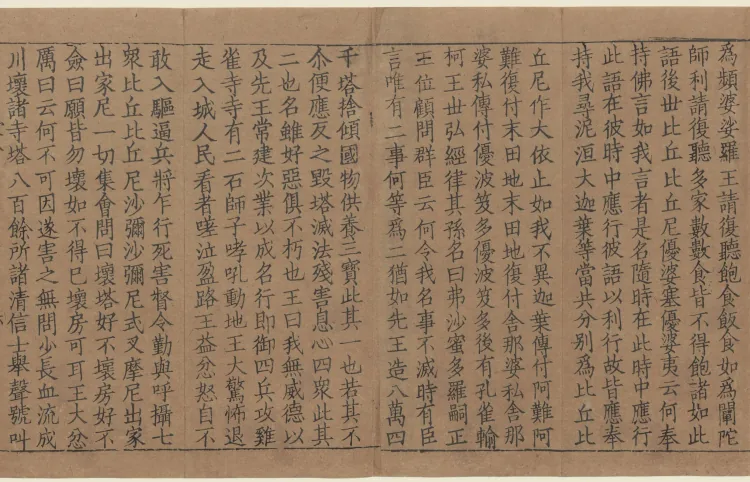 為頻婆娑羅王請復聽飽食飯食如為闡陀
師利請復聽多家數數食皆不得飽諸如此
語後世比丘比丘尼優婆塞優婆夷云何奉
持佛言如我言者是名隨時在此時中應行
此語在彼時中應行彼語以利行故皆應奉
持我尋泥洹大迦葉等當共分別為比丘比
丘尼作大依止如我不異迦葉傳付阿難阿
難復付末田地末田地復付舍那婆私舍那
婆私傳付優波笈多優波笈多後有孔雀輸
柯王世弘經律其孫名曰弗沙蜜多羅嗣正
王位顧問群臣云何令我名事不滅時有臣
言唯有二事何等為二猶如先王造八萬四
千塔捨傾國物供養三寶此其一也若其不
尒便應反之毀塔滅法殘害息心四衆此其
二也名雖好惡俱不朽也王曰我無威德以
及先王常建次業以成名行即御四兵攻雞
雀寺寺有二石師子哮吼動地王大驚怖退
走入城人民看者嗥泣盈路王益忿怒自不
敢入驅逼兵將乍行死害督令勤與呼攝七
衆比丘比丘尼沙彌沙彌尼式叉摩尼出家
出家尼一切集會問曰壞塔好不壞房好不
僉曰願皆勿壞如不得已壞房可耳王大忿
厲曰云何不可因遂害之無問少長血流成
川壞諸寺塔八百餘所諸清信士舉聲號叫